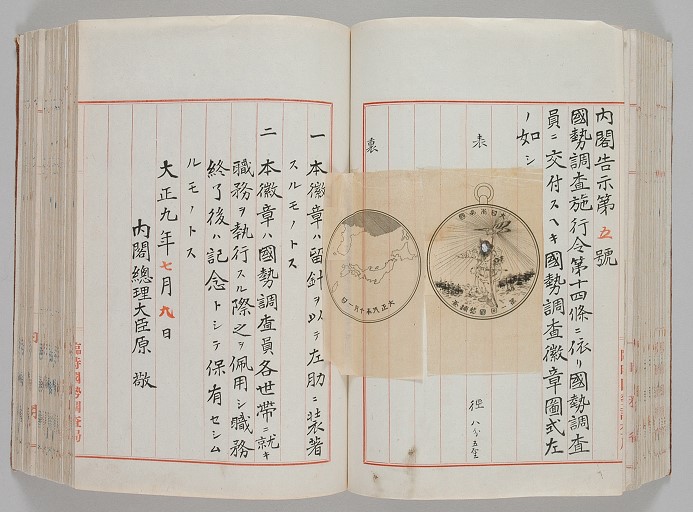 内閣告示第五號
國勢調査施行令第十四條ニ依リ國勢調査
員ニ交付スヘキ國勢調査徽章圖式左
ノ如シ
表
大日本帝國
第一回國勢調査
徑八分五厘
裏
大正九年十月一日
一本徽章ハ留針ヲ以テ左肋ニ装著
スルモノトス
二本徽章ハ國勢調査員各世帶ニ就キ
職務ヲ執行スル際之ヲ佩用シ職務
終了後ハ記念トシテ保有セシム
ルモノトス
大正九年七月九日
内閣總理大臣原敬
臨時國勢調査局